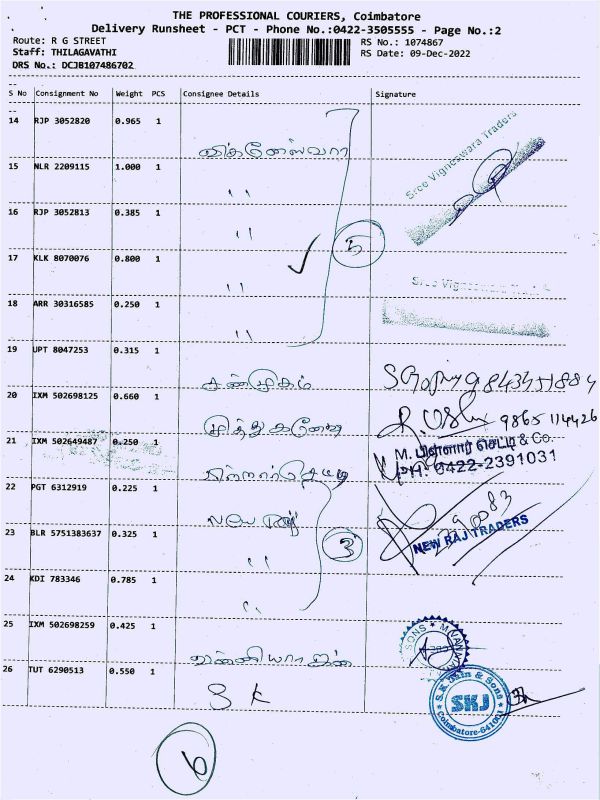 THE PROFESSIONAL COURIERS, Coimbatore
Delivery Runsheet - PCT - Phone No.:0422-3505555 - Page No.:2
Route: R G STREET
Staff: THILAGAVATHI
DRS No.: DCJB107486702
RS No.: 1074867
RS Date: 09-Dec-2022
S No Consignment No Weight PCS Consignee Details Signature
14 RJP 3052820 0.965 1
விக்னேஸ்வரா
Sree Vigneswara Traders
15 NLR 2209115 1.000 1
"
16 RJP 3052813 0.385 1
"
5
17 KLK 8070076 0.800 1
"
Sree Vigneswara
18 ARR 30316585 0.250 1
"
19 UPT 8047253 0.315 1
சண்முகம்
9843451884
20 IXM 502698125 0.660 1
9865114426
21 IXM 502649487 0.250 1
M. பிள்ளையார் செட்டி & Co.
PH: 0422-2391031
22 PGT 6312919 0.225 1
NEW RAJ TRADERS
23 BLR 5751383637 0.325 1
"
3
24 KDI 783346 0.785 1
"
25 IXM 502698259 0.425 1
26 TUT 6290513 0.550 1
S K
S.K. Jain & Sons
SKJ
Coimbatore-641001
6